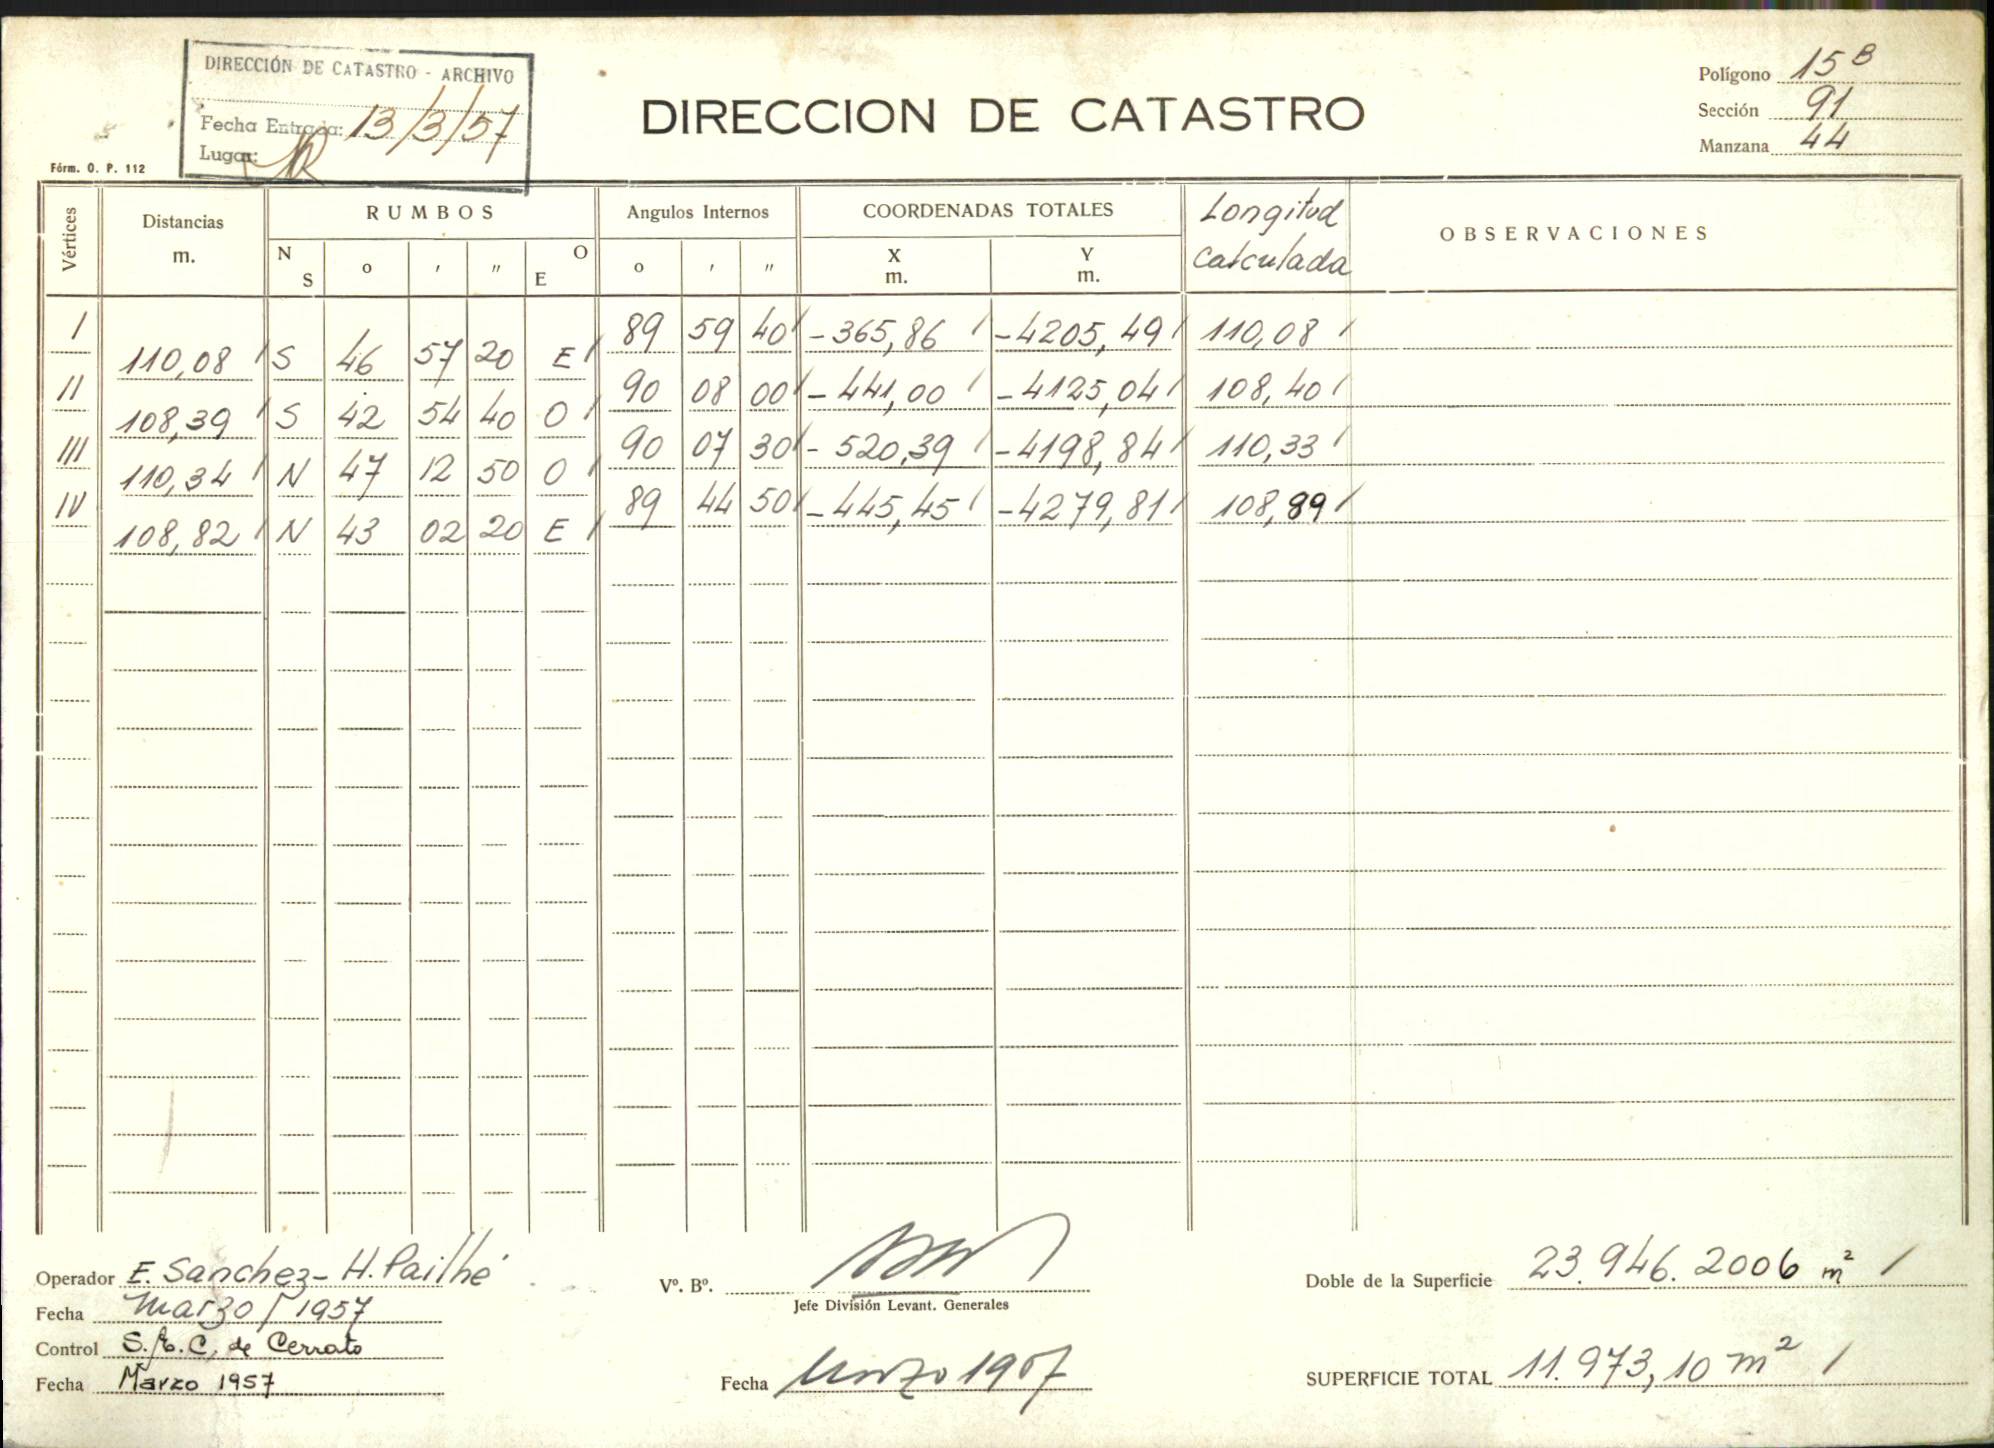 DIRECCIÓN DE CATASTRO - ARCHIVO
Fecha Entrada: 13/3/57
Lugar:
Fórm. O. P. 112
DIRECCION DE CATASTRO
Polígono 15 B
Sección 91
Manzana 44
Vértices Distancias m. RUMBOS Angulos Internos COORDENADAS TOTALES Longitud Calculada OBSERVACIONES
N S o ' " O E o ' " X m. Y m.
I 89 59 40 -365,86 -4205,49 110,08
110,08 S 46 57 20 E
II 90 08 00 -441,00 -4125,04 108,40
108,39 S 42 54 40 O
III 90 07 30 -520,39 -4198,84 110,33
110,34 N 47 12 50 O
IV 89 44 50 -445,45 -4279,81 108,89
108,82 N 43 02 20 E
Operador E. Sanchez - H. Pailhé
Fecha Marzo / 1957
Control S. E. C. de Cerrato
Fecha Marzo 1957
Vº. Bº.
Jefe División Levant. Generales
Fecha Marzo 1957
Doble de la Superficie 23.946.2006 m²
SUPERFICIE TOTAL 11.973,10 m²